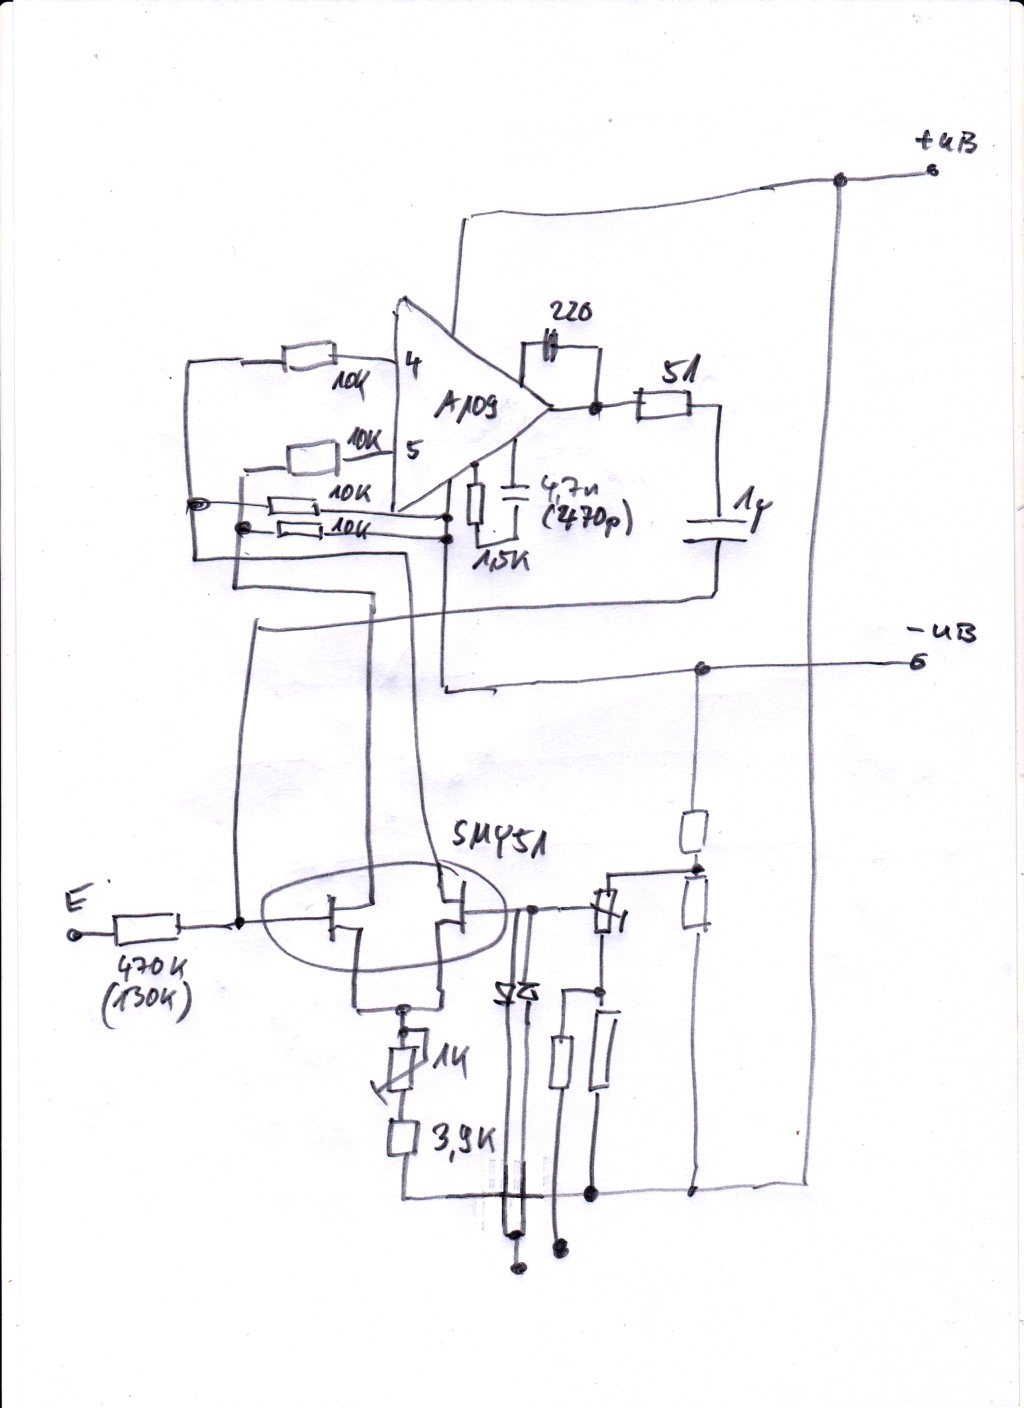 +uB
220
4
10K
A109
51
10K
5
10K
4,7n
(470p)
1µ
10K
1,5K
-uB
SMY51
E
470K
(130K)
1K
3,9K